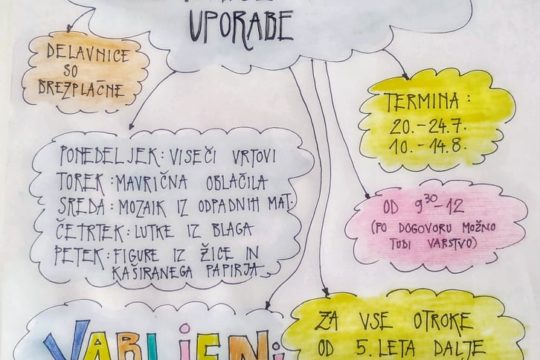 UPORABE
DELAVNICE
SO
BREZPLAČNE
TERMINA:
20.-24.7.
10.-14.8.
PONEDELJEK: VISEČI VRTOVI
TOREK: MAVRIČNA OBLAČILA
SREDA: MOZAIK IZ ODPADNIH MAT.
ČETRTEK: LUTKE IZ BLAGA
PETEK: FIGURE IZ ŽICE IN
KAŠIRANEGA PAPIRJA
OD 9³⁰-12
(PO DOGOVORU MOŽNO
TUDI VARSTVO)
VABLJENI
ZA VSE OTROKE
OD 5. LETA DALJE